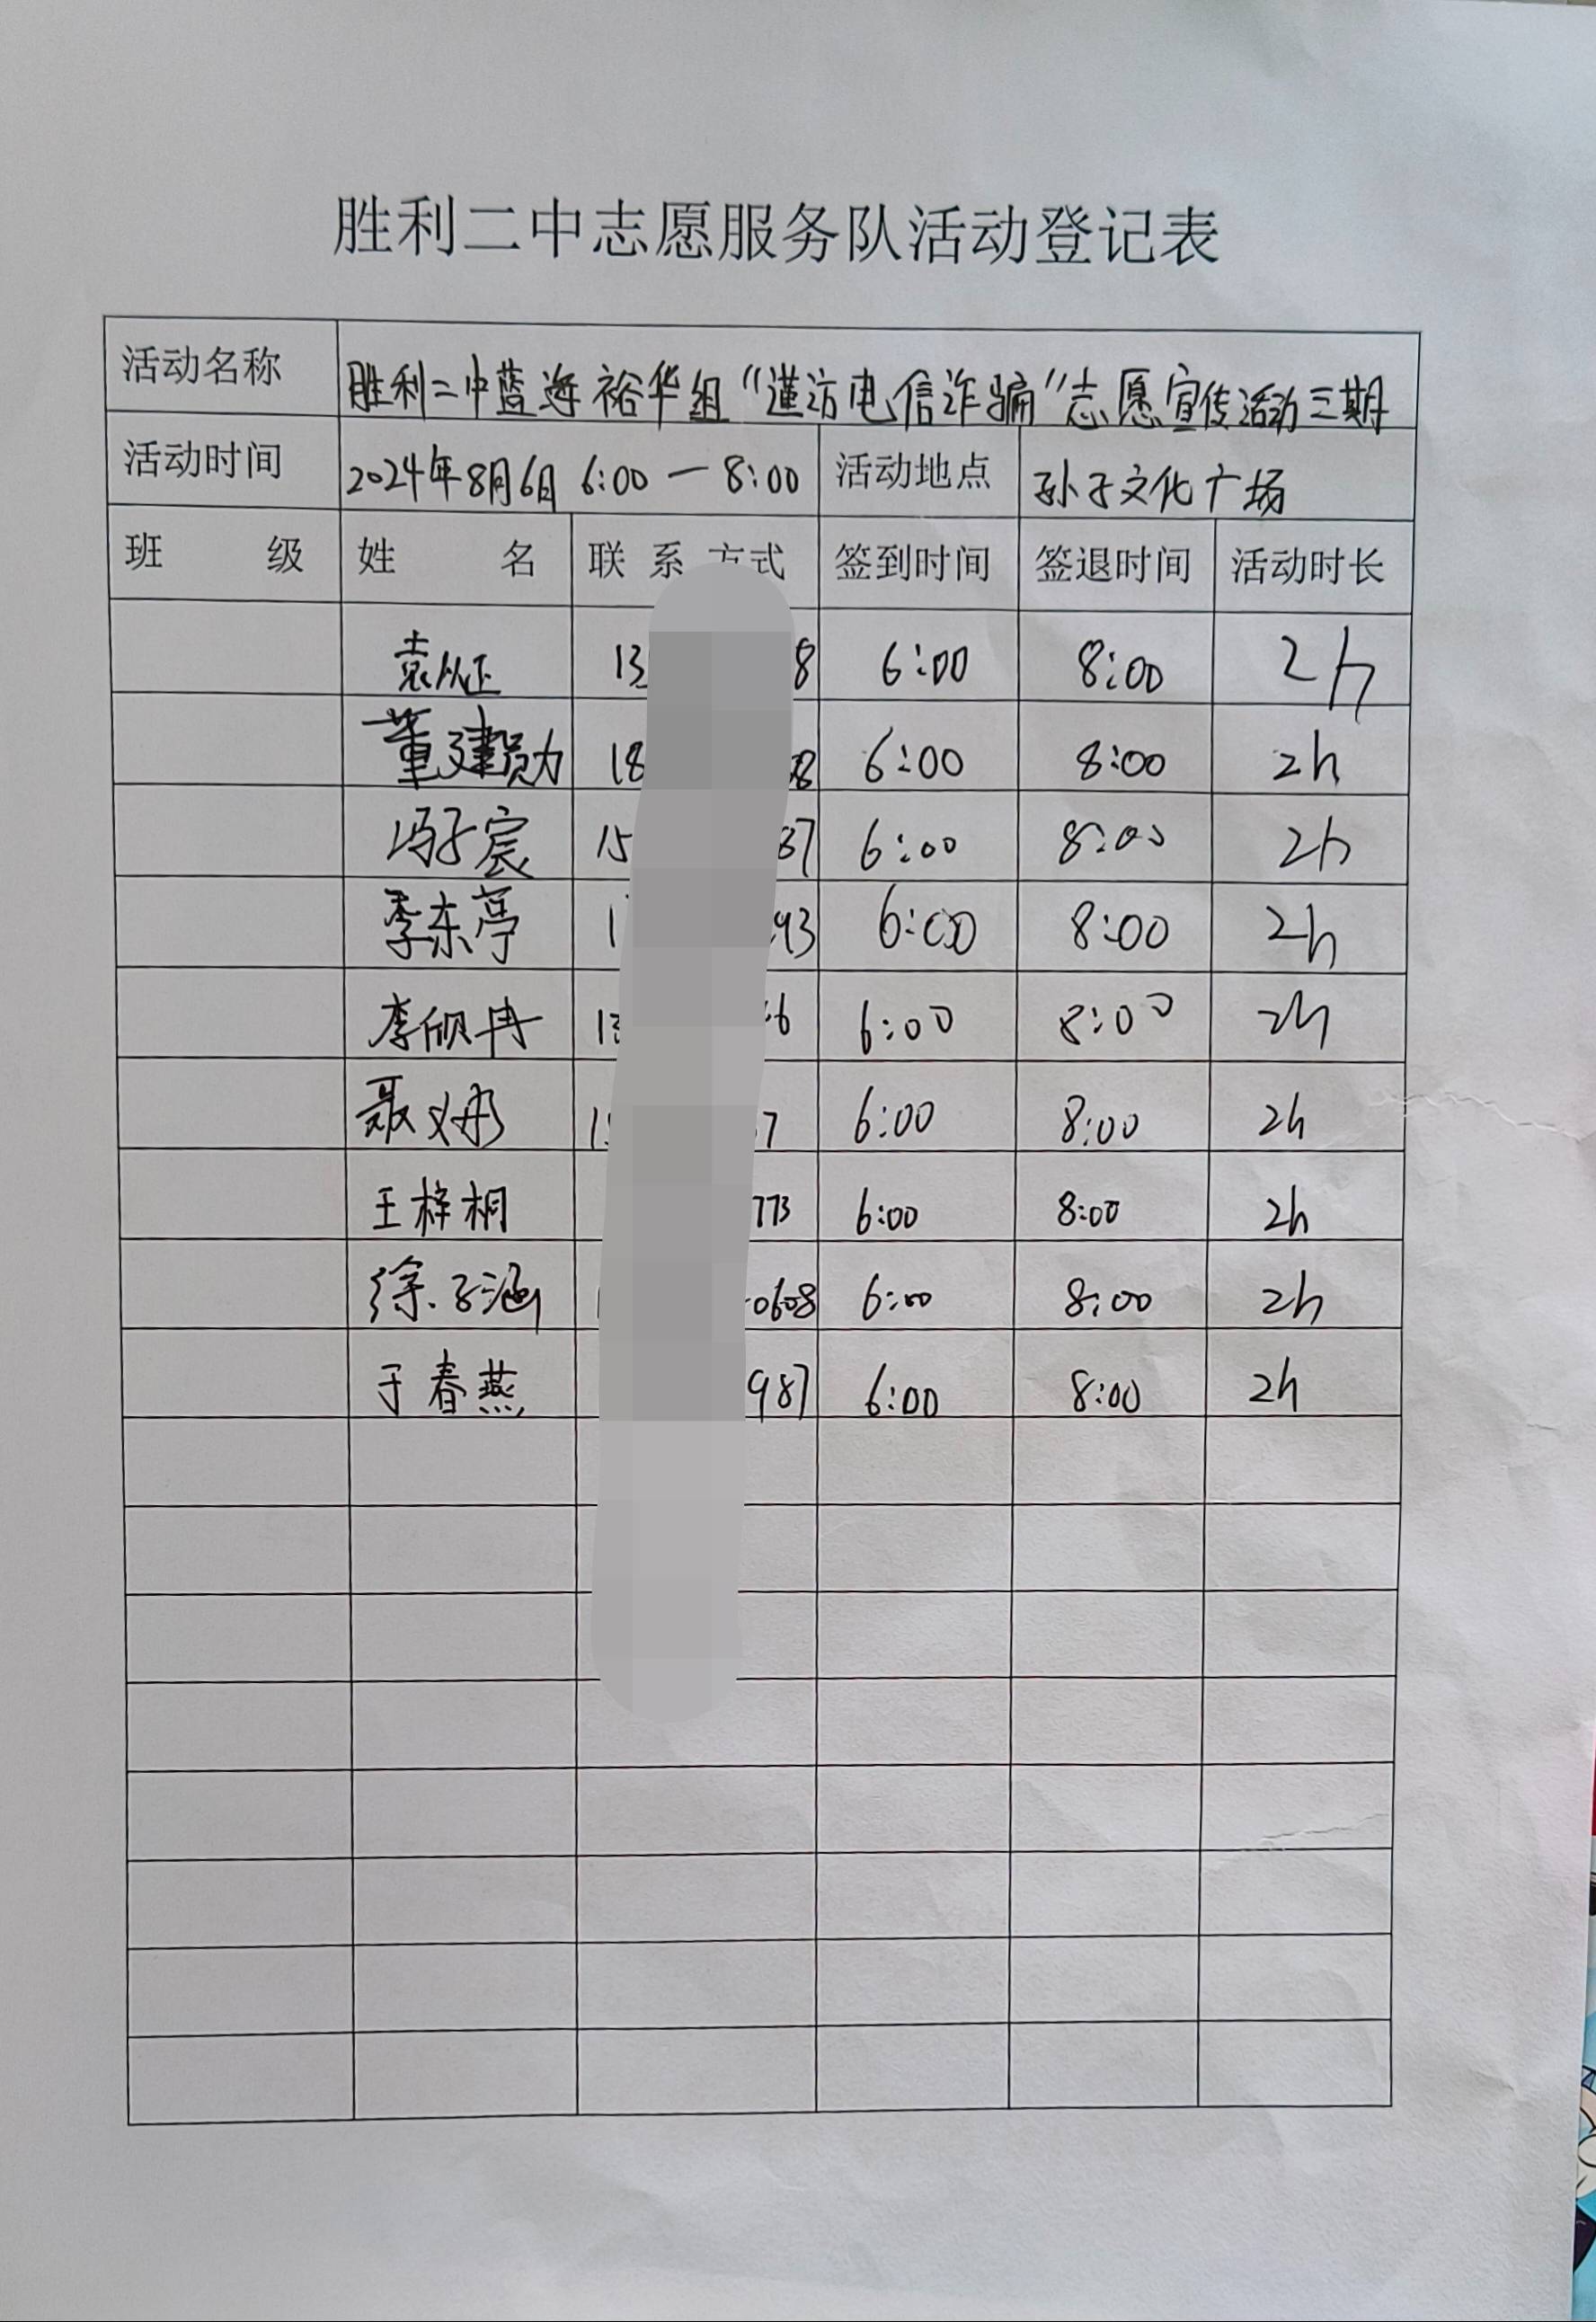 胜利二中志愿服务队活动登记表
活动名称 胜利二中蓝海裕华组“谨访电信诈骗”志愿宣传活动三期
活动时间 2024年8月6日 6:00—8:00 活动地点 孙子文化广场
班 级 姓 名 联 系 方式 签到时间 签退时间 活动时长
袁从正 13 8 6:00 8:00 2h
董建勋 18 8 6:00 8:00 2h
冯子宸 15 37 6:00 8:00 2h
李东亭 1 93 6:00 8:00 2h
李欣冉 13 6 6:00 8:00 2h
聂义彤 1 7 6:00 8:00 2h
王梓桐 773 6:00 8:00 2h
徐子涵 0608 6:00 8:00 2h
于春燕 987 6:00 8:00 2h